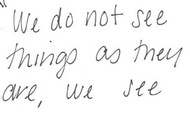 We do not see
things as they
are, we see